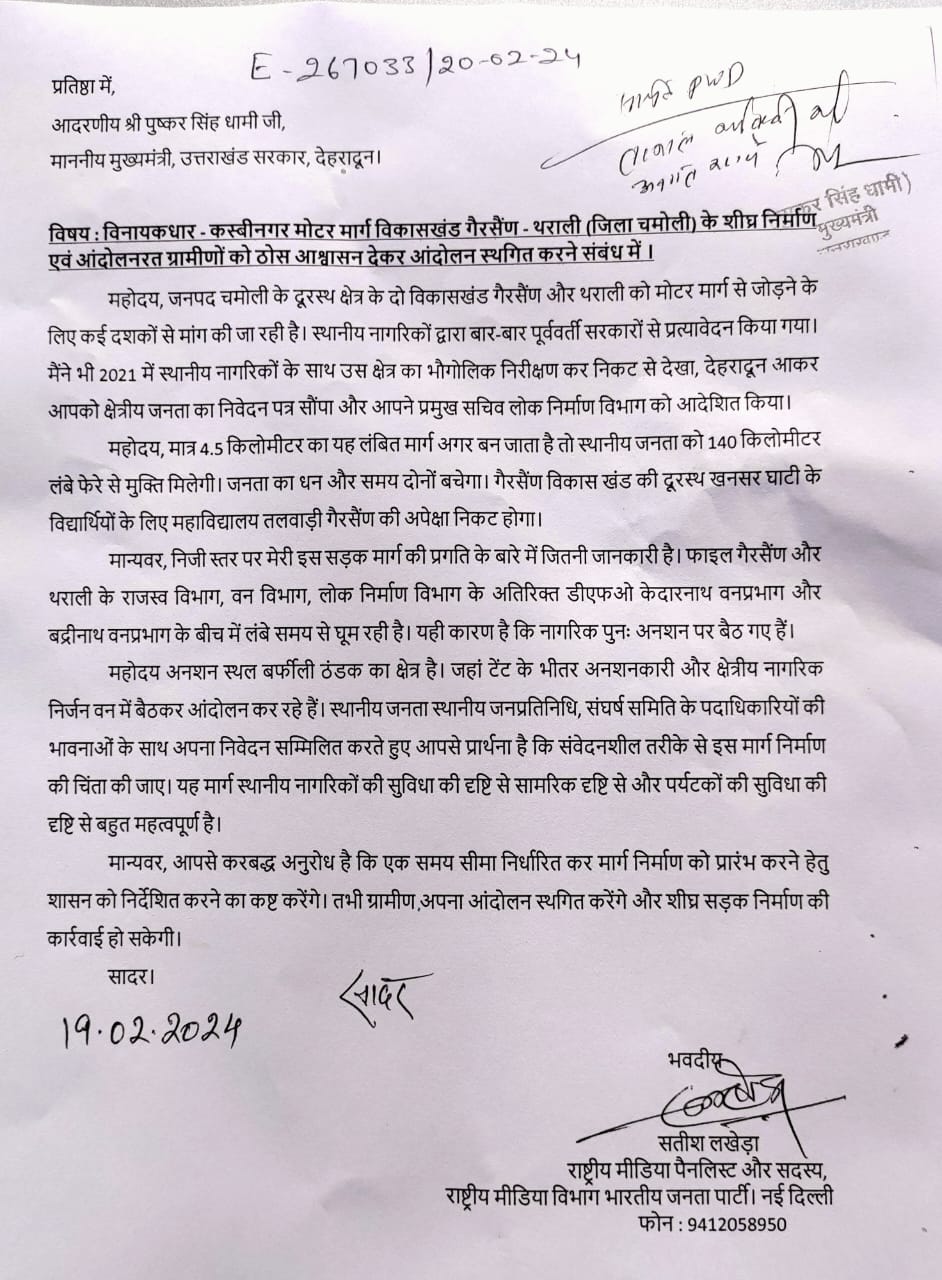 E - 267033/20-02-24
प्रतिष्ठा में,
आदरणीय श्री पुष्कर सिंह धामी जी,
माननीय मुख्यमंत्री, उत्तराखंड सरकार, देहरादून।
PWD
तत्काल
सिंह धामी)
मुख्यमंत्री
विषय : विनायकधार - कस्बीनगर मोटर मार्ग विकासखंड गैरसैंण - थराली (जिला चमोली) के शीघ्र निर्माण
एवं आंदोलनरत ग्रामीणों को ठोस आश्वासन देकर आंदोलन स्थगित करने संबंध में ।
महोदय, जनपद चमोली के दूरस्थ क्षेत्र के दो विकासखंड गैरसैंण और थराली को मोटर मार्ग से जोड़ने के
लिए कई दशकों से मांग की जा रही है। स्थानीय नागरिकों द्वारा बार-बार पूर्ववर्ती सरकारों से प्रत्यावेदन किया गया।
मैंने भी 2021 में स्थानीय नागरिकों के साथ उस क्षेत्र का भौगोलिक निरीक्षण कर निकट से देखा, देहरादून आकर
आपको क्षेत्रीय जनता का निवेदन पत्र सौंपा और आपने प्रमुख सचिव लोक निर्माण विभाग को आदेशित किया।
महोदय, मात्र 4.5 किलोमीटर का यह लंबित मार्ग अगर बन जाता है तो स्थानीय जनता को 140 किलोमीटर
लंबे फेरे से मुक्ति मिलेगी। जनता का धन और समय दोनों बचेगा। गैरसैंण विकास खंड की दूरस्थ खनसर घाटी के
विद्यार्थियों के लिए महाविद्यालय तलवाड़ी गैरसैंण की अपेक्षा निकट होगा।
मान्यवर, निजी स्तर पर मेरी इस सड़क मार्ग की प्रगति के बारे में जितनी जानकारी है। फाइल गैरसैंण और
थराली के राजस्व विभाग, वन विभाग, लोक निर्माण विभाग के अतिरिक्त डीएफओ केदारनाथ वनप्रभाग और
बद्रीनाथ वनप्रभाग के बीच में लंबे समय से घूम रही है। यही कारण है कि नागरिक पुनः अनशन पर बैठ गए हैं।
महोदय अनशन स्थल बर्फीली ठंडक का क्षेत्र है। जहां टेंट के भीतर अनशनकारी और क्षेत्रीय नागरिक
निर्जन वन में बैठकर आंदोलन कर रहे हैं। स्थानीय जनता स्थानीय जनप्रतिनिधि, संघर्ष समिति के पदाधिकारियों की
भावनाओं के साथ अपना निवेदन सम्मिलित करते हुए आपसे प्रार्थना है कि संवेदनशील तरीके से इस मार्ग निर्माण
की चिंता की जाए। यह मार्ग स्थानीय नागरिकों की सुविधा की दृष्टि से सामरिक दृष्टि से और पर्यटकों की सुविधा की
दृष्टि से बहुत महत्वपूर्ण है।
मान्यवर, आपसे करबद्ध अनुरोध है कि एक समय सीमा निर्धारित कर मार्ग निर्माण को प्रारंभ करने हेतु
शासन को निर्देशित करने का कष्ट करेंगे। तभी ग्रामीण अपना आंदोलन स्थगित करेंगे और शीघ्र सड़क निर्माण की
कार्रवाई हो सकेगी।
सादर।
सादर
19.02.2024
भवदीय
सतीश लखेड़ा
राष्ट्रीय मीडिया पैनलिस्ट और सदस्य,
राष्ट्रीय मीडिया विभाग भारतीय जनता पार्टी। नई दिल्ली
फोन : 9412058950